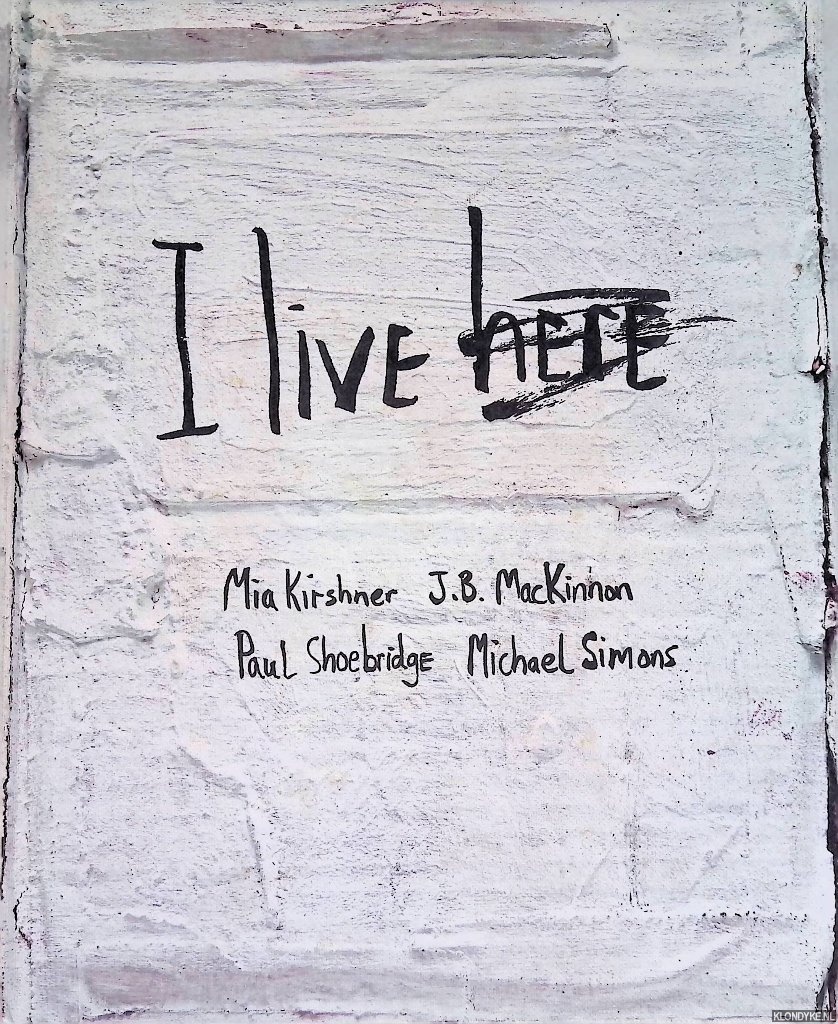 I live here
Mia Kirshner J.B. MacKinnon
Paul Shoebridge Michael Simons
KLONDYKE.NL